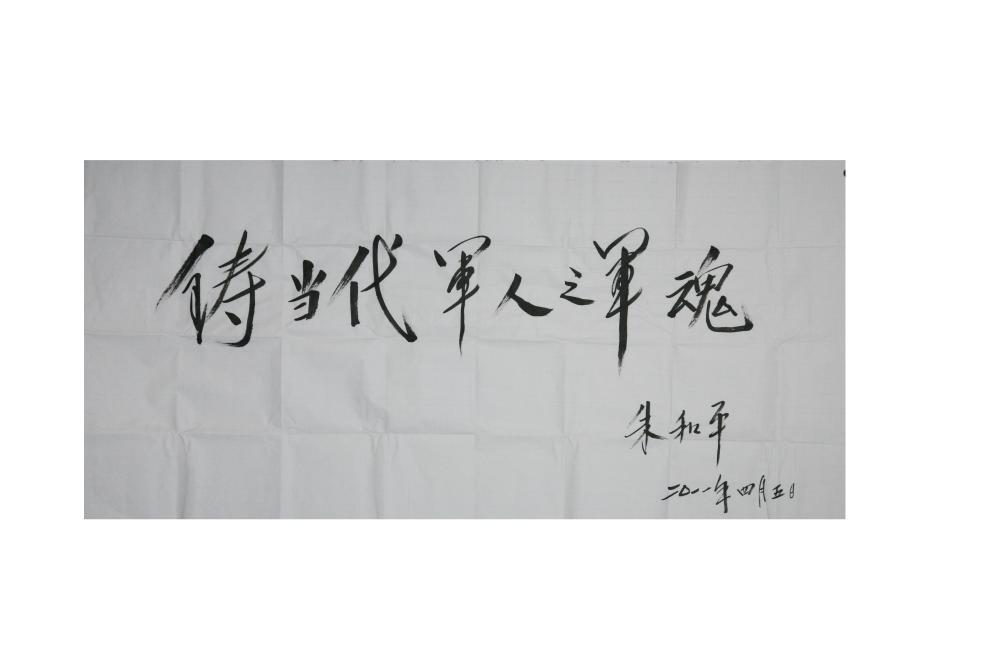 铸当代軍人之軍魂
朱和平
二〇一一年四月五日